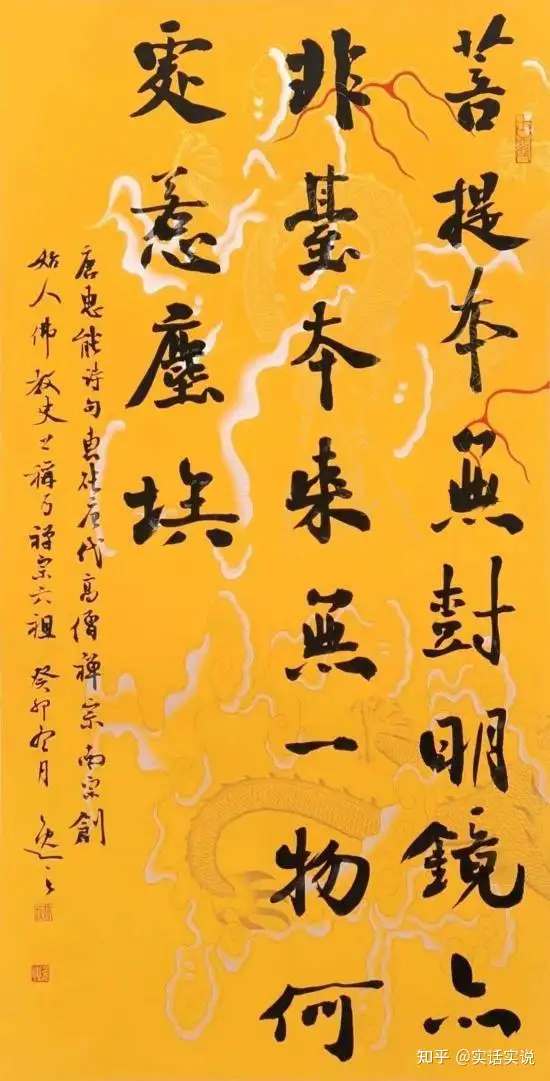 菩提本無樹明鏡亦
非臺本來無一物何
處惹塵埃
唐惠能诗句惠能唐代高僧禅宗南宗創
始人佛教史上稱为禅宗六祖 癸卯冬月
知乎 @实话实说